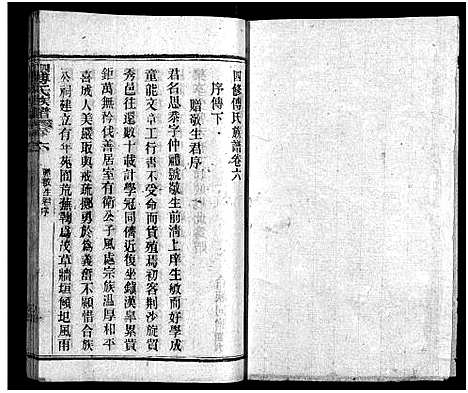 四修傅氏族譜卷六
序傳下
贈敬生君序
君名思黍字仲禮號敬生前清上庠生敏而好學成
童能文章工行書不受命而貨殖焉初客荆沙旋貿
秀邑往還數十載計學冠同儕近復坐鎮漢皋累貲
鉅萬無矜伐善居室有衛公子風處宗族溫厚和平
喜成人美嚴取與戒疏擲勇於為義奮不顧惜合族
公祠建立有年苑囿荒蕪鞠為茂草牆垣傾圯風雨
四修傅氏族譜
卷六
贈敬生君序